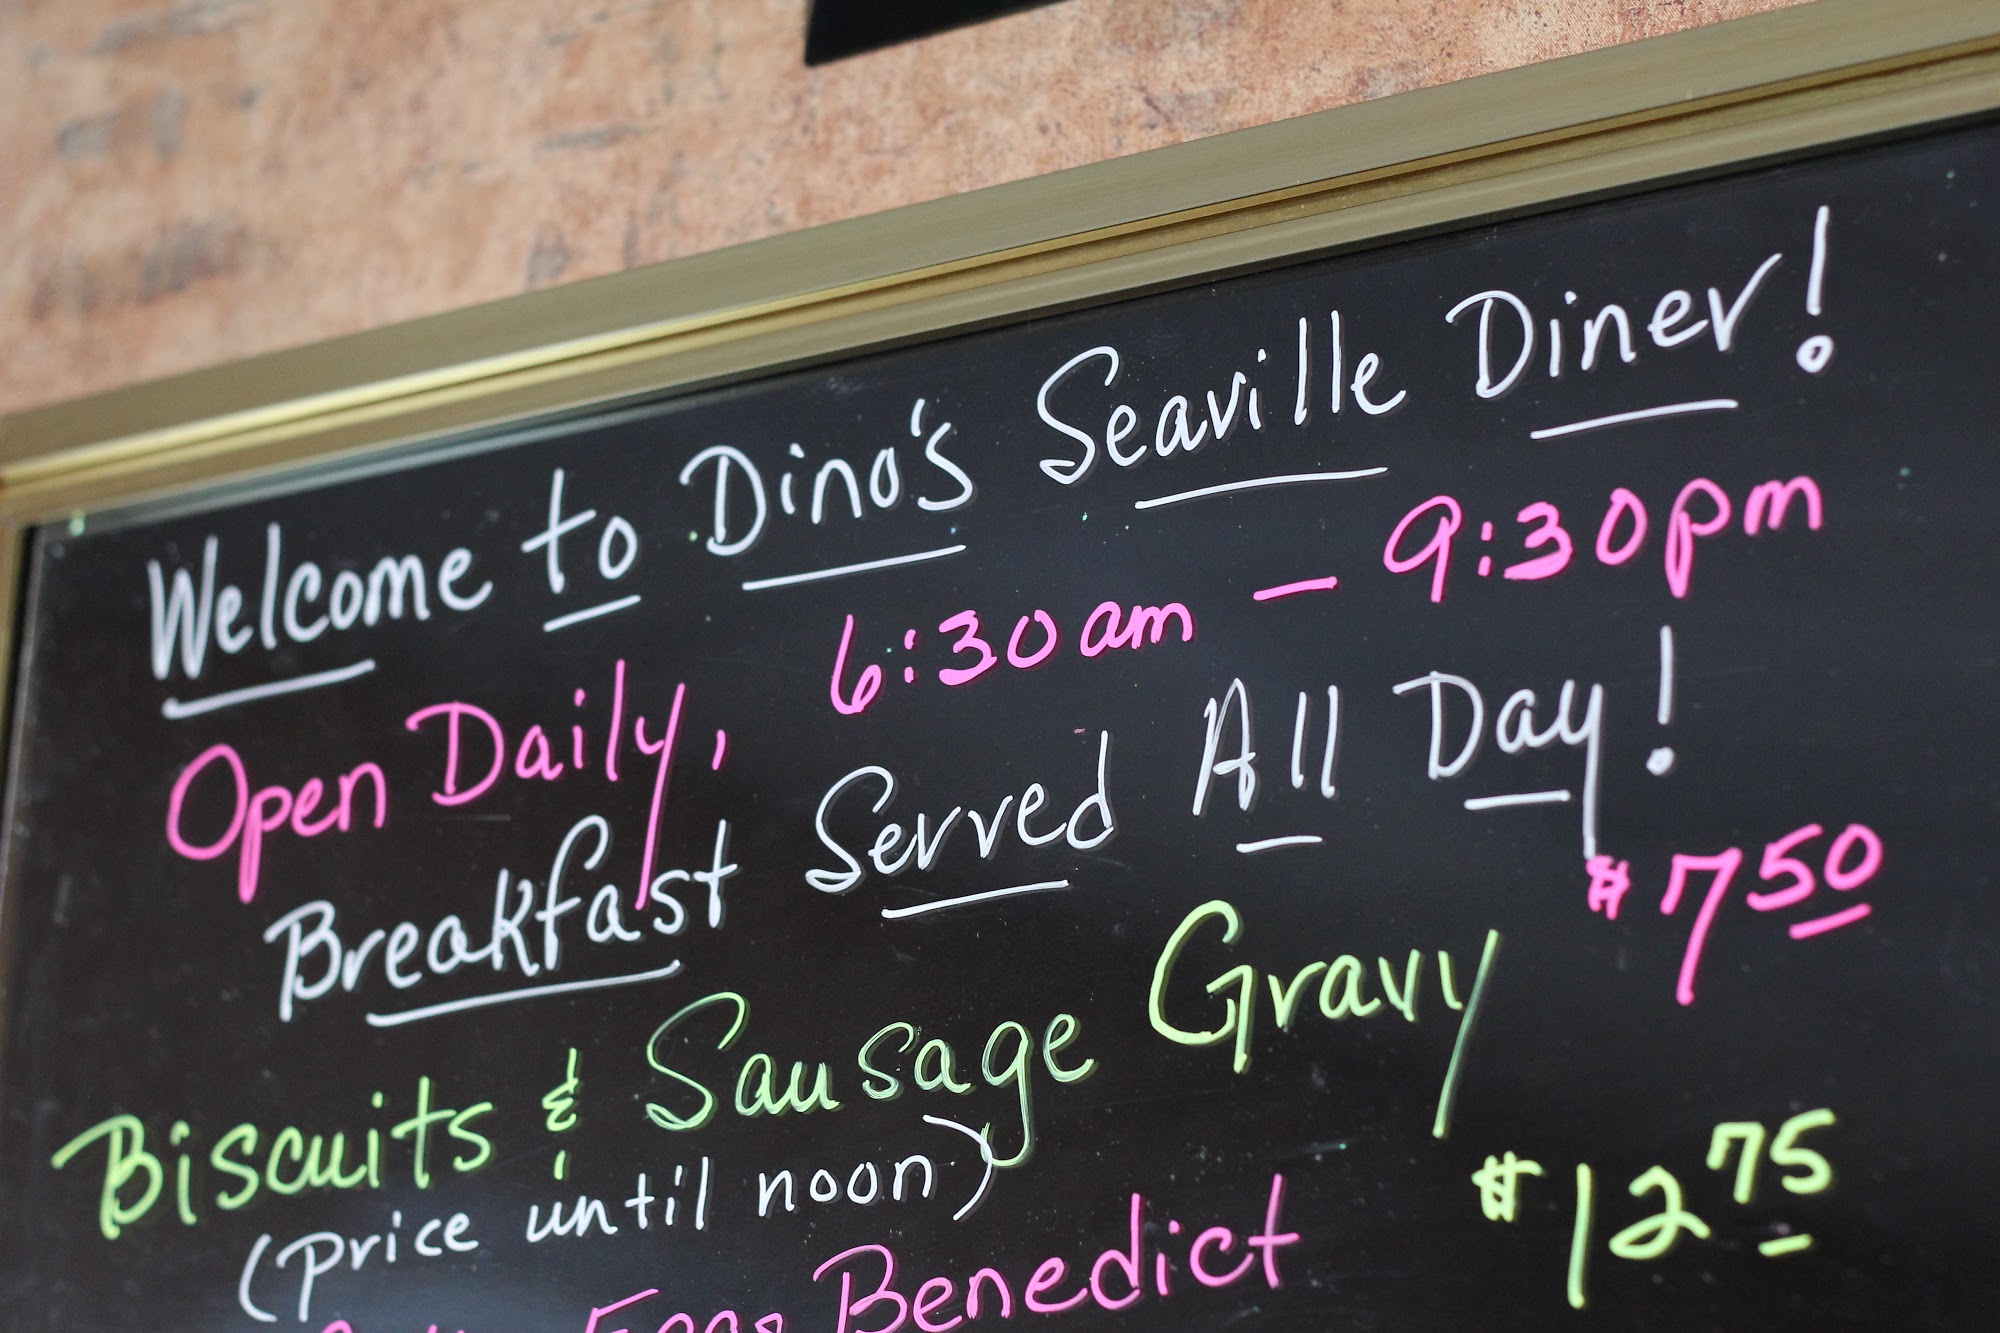 Welcome to Dino's Seaville Diner!
Open Daily, 6:30am – 9:30pm
Breakfast Served All Day!
Biscuits & Sausage Gravy $7 50
(Price until noon)
Eggs Benedict $12 75